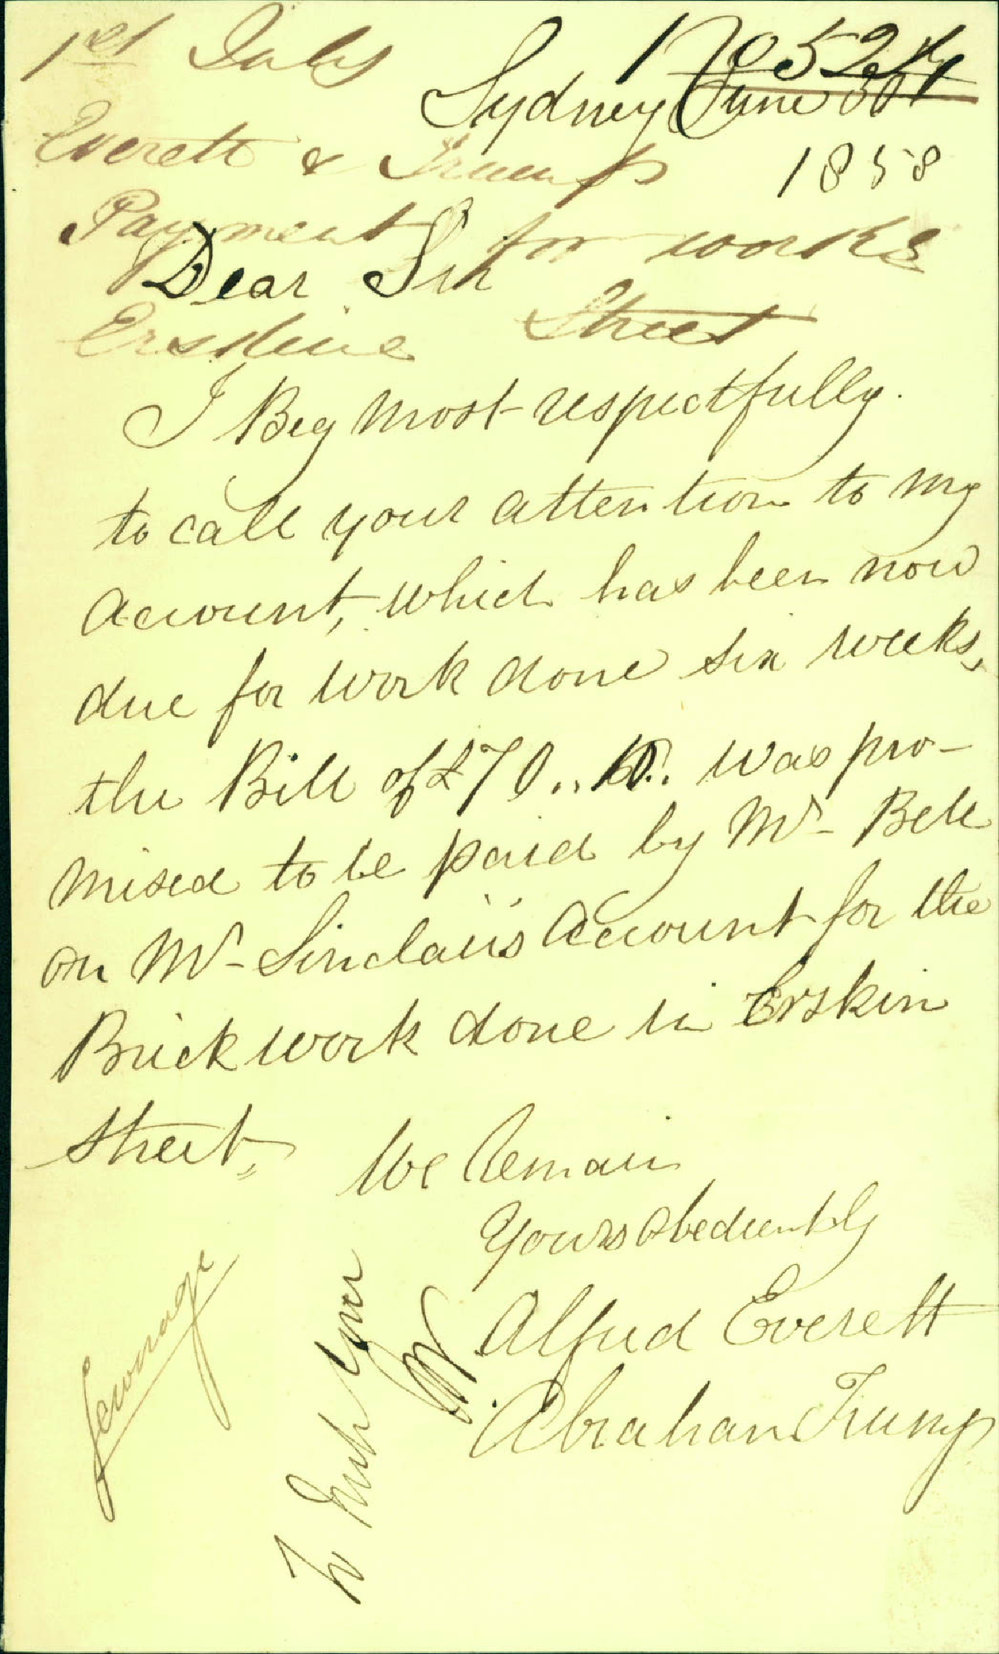 1st July
Sydney June 30th
Everett & Trump
1858
Payment for works
Dear Sir
Erskine Street
I Beg most respectfully.
to call your attention to my
account, which has been now
due for work done six weeks,
the Bill of £70.. was pro-
mised to be paid by Mr Bell
on Mr Sinclairs account for the
Brick work done in Erskin
Street,
We Remain
Yours obediently
Alfred Everett
Abraham Trump
Sewerage